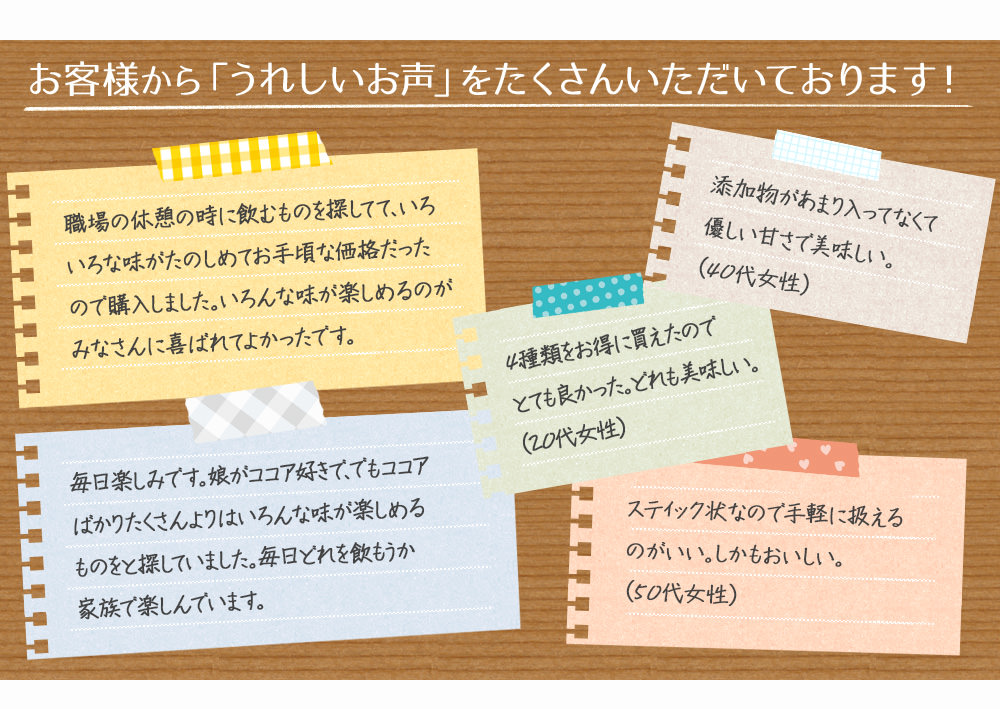 お客様から「うれしいお声」をたくさんいただいております！
職場の休憩の時に飲むものを探してて、いろ
いろな味がたのしめてお手頃な価格だった
ので購入しました。いろんな味が楽しめるのが
みなさんに喜ばれてよかったです。
添加物があまり入ってなくて
優しい甘さで美味しい。
(40代女性)
4種類をお得に買えたので
とても良かった。どれも美味しい。
(20代女性)
毎日楽しみです。娘がココア好きで、でもココア
ばかりたくさんよりはいろんな味が楽しめる
ものをと探していました。毎日どれを飲もうか
家族で楽しんでいます。
スティック状なので手軽に扱える
のがいい。しかもおいしい。
(50代女性)